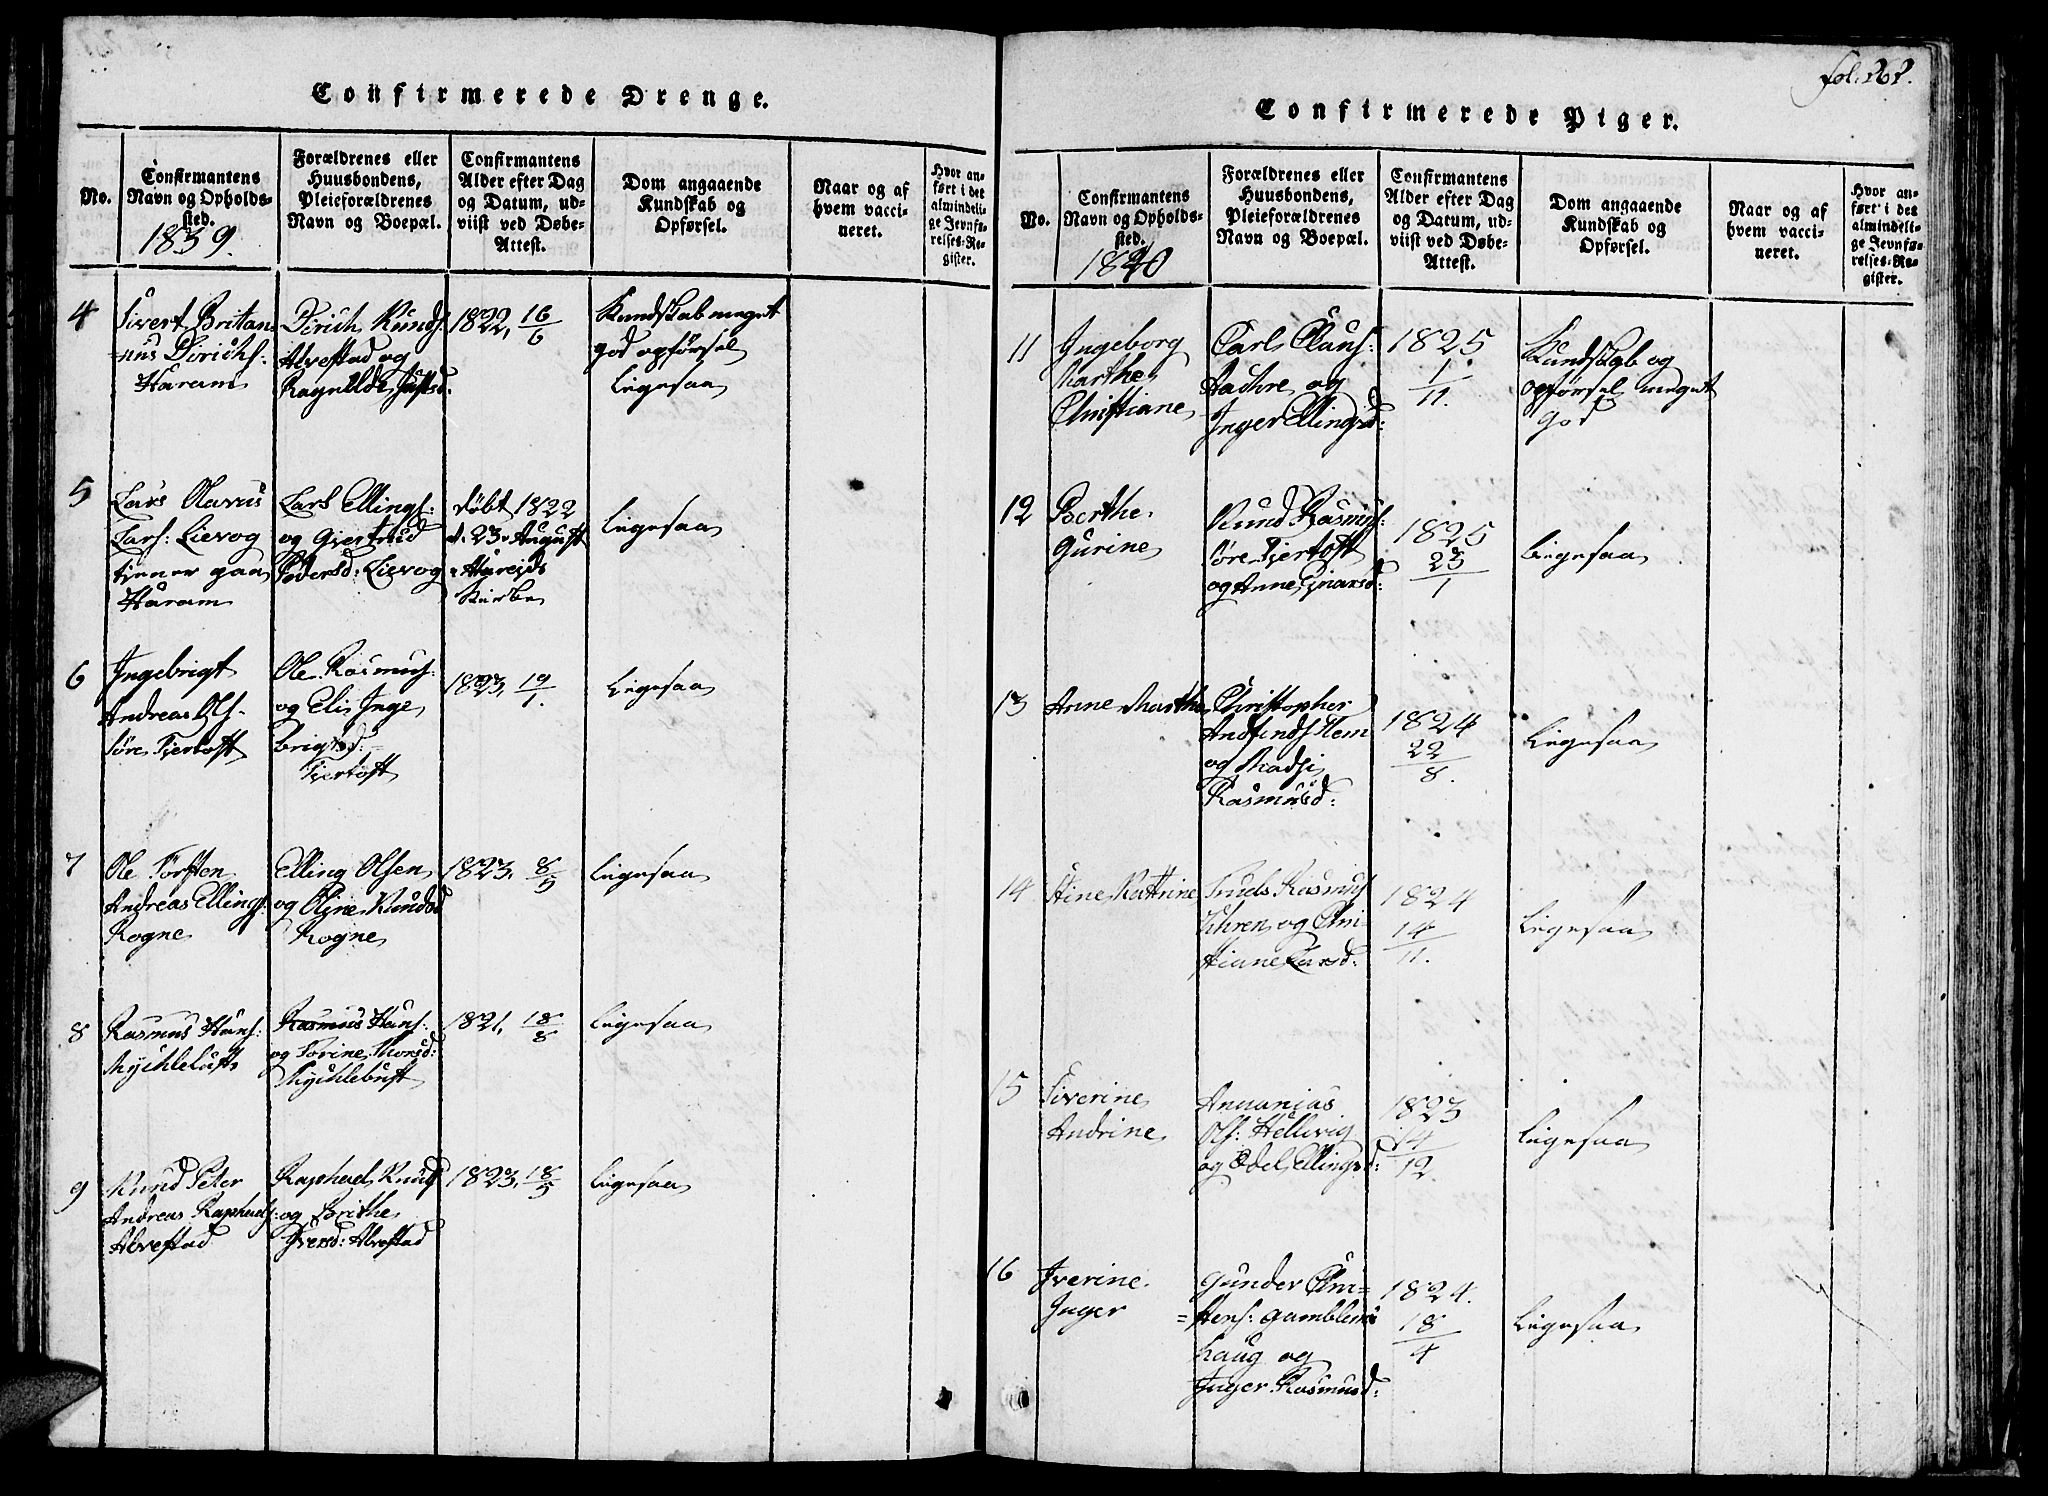 Confirmerede Drenge.
No.
Confirmantens
Navn og Opholds-
sted.
1839.
Forældrenes eller
Huusbondens,
Pleieforældrenes
Navn og Boepæl.
Confirmantens
Alder efter Dag
og Datum, ud-
viist ved Døbe-
Attest.
Dom angaaende
Kundskab og
Opførsel.
Naar og af
hvem vacci-
neret.
Hvor an-
ført i det
almindeli-
ge Jevnfø-
relses-Re-
gister.
4
Sivert Britan
=nus Dirichs:
Haram
Dirich Knuds:
Alvestad og
Ragnilde
1822, 16/6
Kundskab meget
god opførsel
Ligesaa
5
Lars Olavus
Lars: Lievog
tjener paa
Haram
Lars Ellings:
og Giertrud
Pedersd: Lievog
døbt 1822
d. 23 August
Kirke
Ligesaa
6
Ingebrigt
Andreas Ols.
Søre Fjertoft
Ole Rasmus:
og Elis Inge
brigtsd:
Fjertoft
1823, 19/1.
Ligesaa
7
Ole Torsten
Andreas Ellings:
Rogne
Elling Olsen
og Oline Knudsd
Rogne
1823, 8/5
Ligesaa
8
Rasmus Hans:
Mychlebust
Rasmus Hans:
og Torine Monsd:
Mychlebust
1821, 18/8
Ligesaa
9
Knud Peter
Andreas Raphaels:
Alvestad
Raphael Knuds
og Brithe
Iversd: Alvestad
1823, 18/5
Ligesaa
fol. 262.
Confirmerede Piger.
No.
Confirmantens
Navn og Opholds-
sted.
1840
Forældrenes eller
Huusbondens,
Pleieforældrenes
Navn og Boepæl.
Confirmantens
Alder efter Dag
og Datum, ud-
viist ved Døbe-
Attest.
Dom angaaende
Kundskab og
Opførsel.
Naar og af
hvem vacci-
neret.
Hvor an-
ført i det
almindeli-
ge Jevnfø-
relses-Re-
gister.
11
Ingeborg
Marthe
Christiane
Carl Claus:
Aachre og
Inger Ellingsd:
1825
1/11.
Kundskab og
opførsel meget
god
12
Berthe
Gurine
Knud Rasmus:
Søre Fjertoft
og Anne Einarsd:
1825
23/1
Ligesaa
13
Anne Marthe
Christopher
Andfinds Hem
og Madsi
Rasmusd:
1824
22/8.
Ligesaa
14
Stine Kathrine
Truels Rasmus
Uhren og Chri
stiane Larsd:
1824
14/11.
Ligesaa
15
Siverine
Andrine
Annanias
Ols: Hellevig
og Edel Ellingsd:
1823
14/12.
Ligesaa
16
Iverine
Inger
Gunder Chri=
=stens: Gamblem
haug og
Inger Rasmusd:
1824.
18/4
Ligesaa